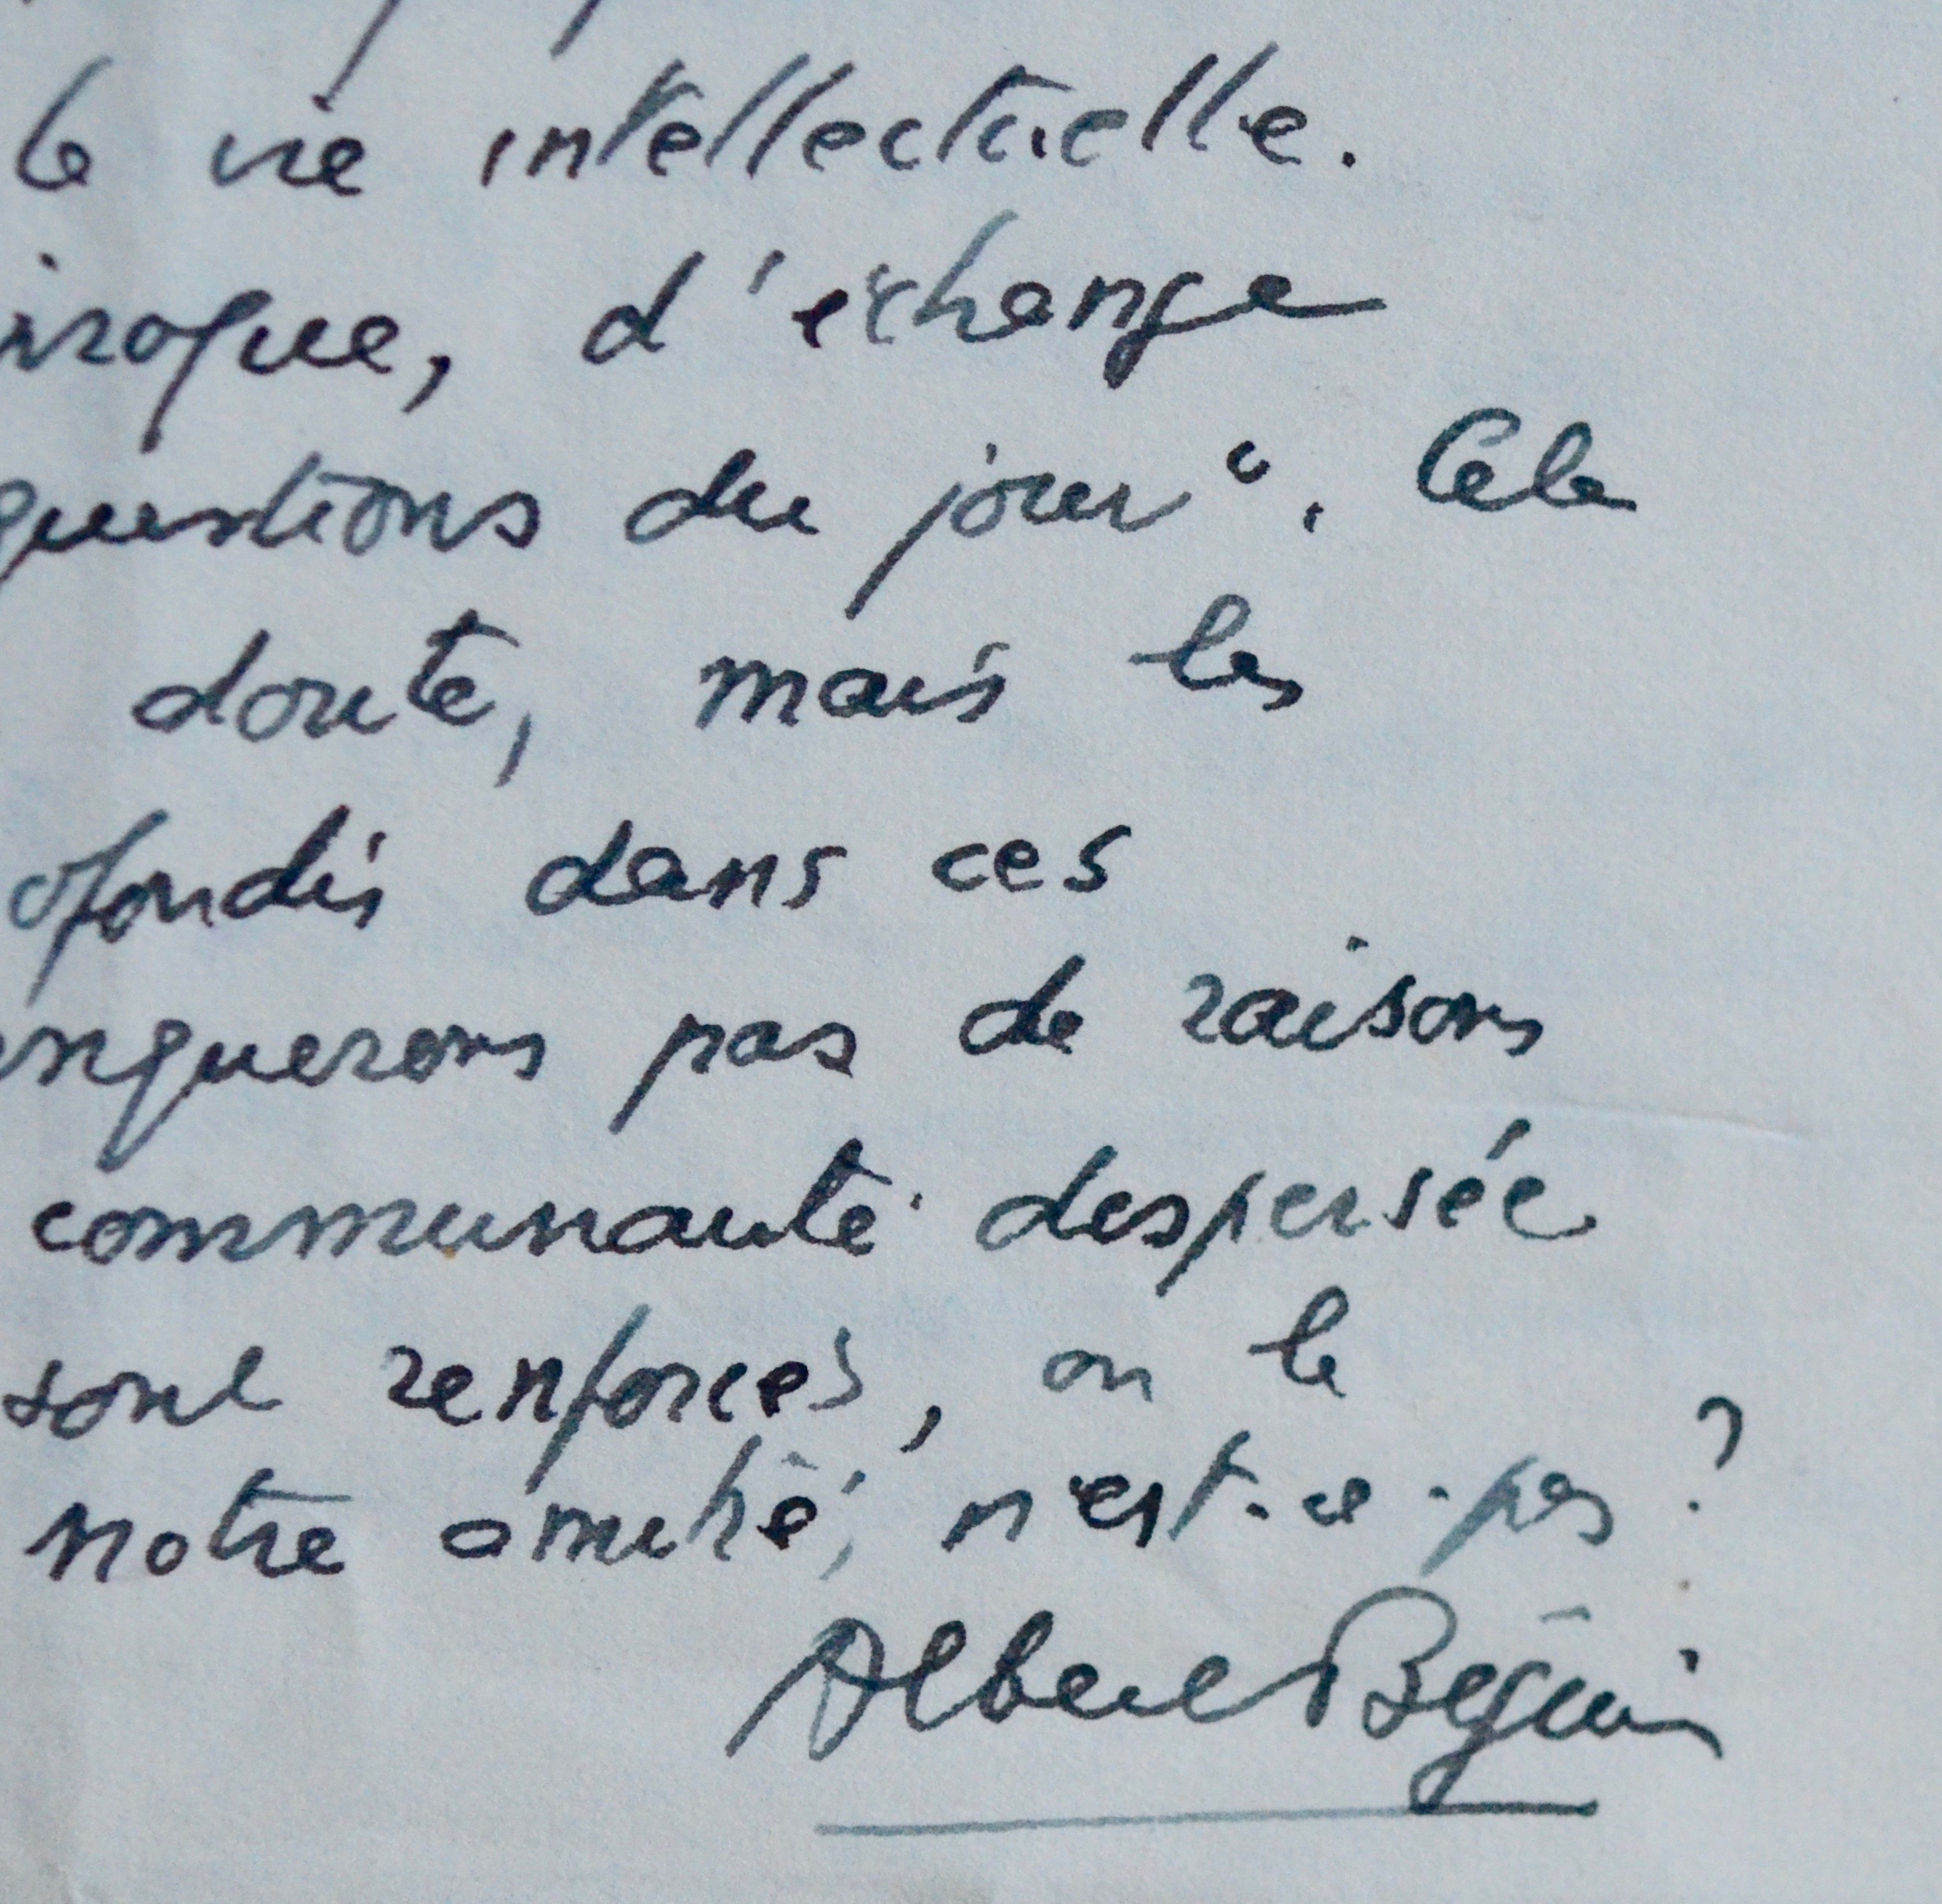 la vie intellectuelle.
iroque, d'échange
questions du jour". Cela
doute, mais les
ofondis dans ces
nquerons pas de raisons
communauté dispersée
sont renforcés, on le
notre amitié, n'est-ce-pas?
Albert Béguin